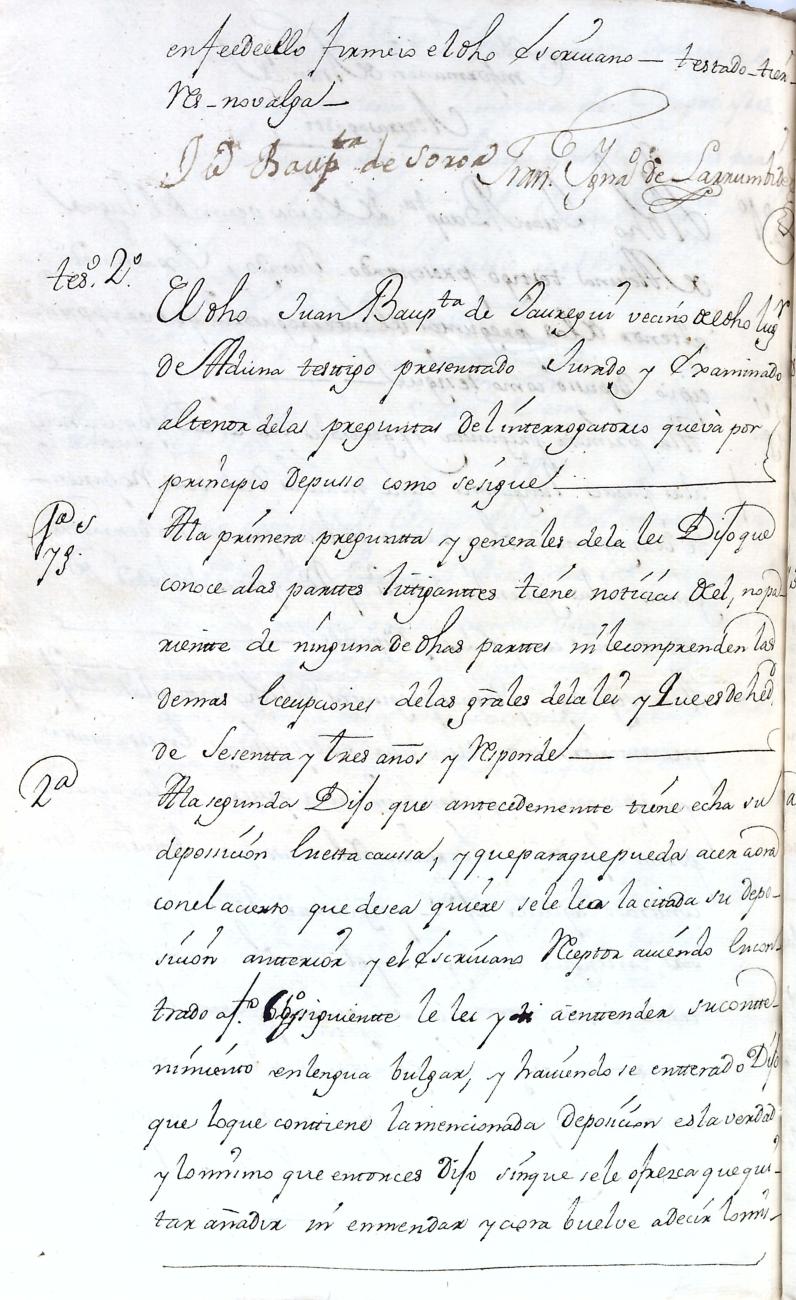 enfeedeello firmeis el dho Escriuano — testado – tien-
Res – no valga —
Jn Baupta de Soroa Fran. Ygnº de Larrumbide
tesº. 2º.
El dho Juan Baupta de Jauregui vecino del dho lugr
de Aduna testigo presenttado Jurado y Examinado
altenor delas preguntas del interrogatorio queva por
principio depusso como sesigue
1ª s
Ala primera preguntta y generales dela lei Dijo que
conoce alas parttes littiganttes tiene noticias del, no pa-
riente de ninguna de dhas parttes ni lecomprenden las
demas Excepciones delas grãles dela lei y Que es de hedd
de Sesentta y tres años y Responde
2ª
Ala segunda Dijo que antecedementte tiene echa su
deposición En esta caussa, y que para que pueda acer aora
con el acierto que desea quiere sele lea la citada su depo-
sición antterior y el Escriuano Reptor auiendo Encon-
trado afº siguientte le lei y di aenttender su contte-
nimiento en lengua bulgar, y hauiendose entterado Dijo
que loque conttiene la mencionada deposición es la verdad
y lo mismo que entonces Dijo sin que sele ofrezca que qui-
tar añadir ni enmendar y aora buelve adecir lo mis-